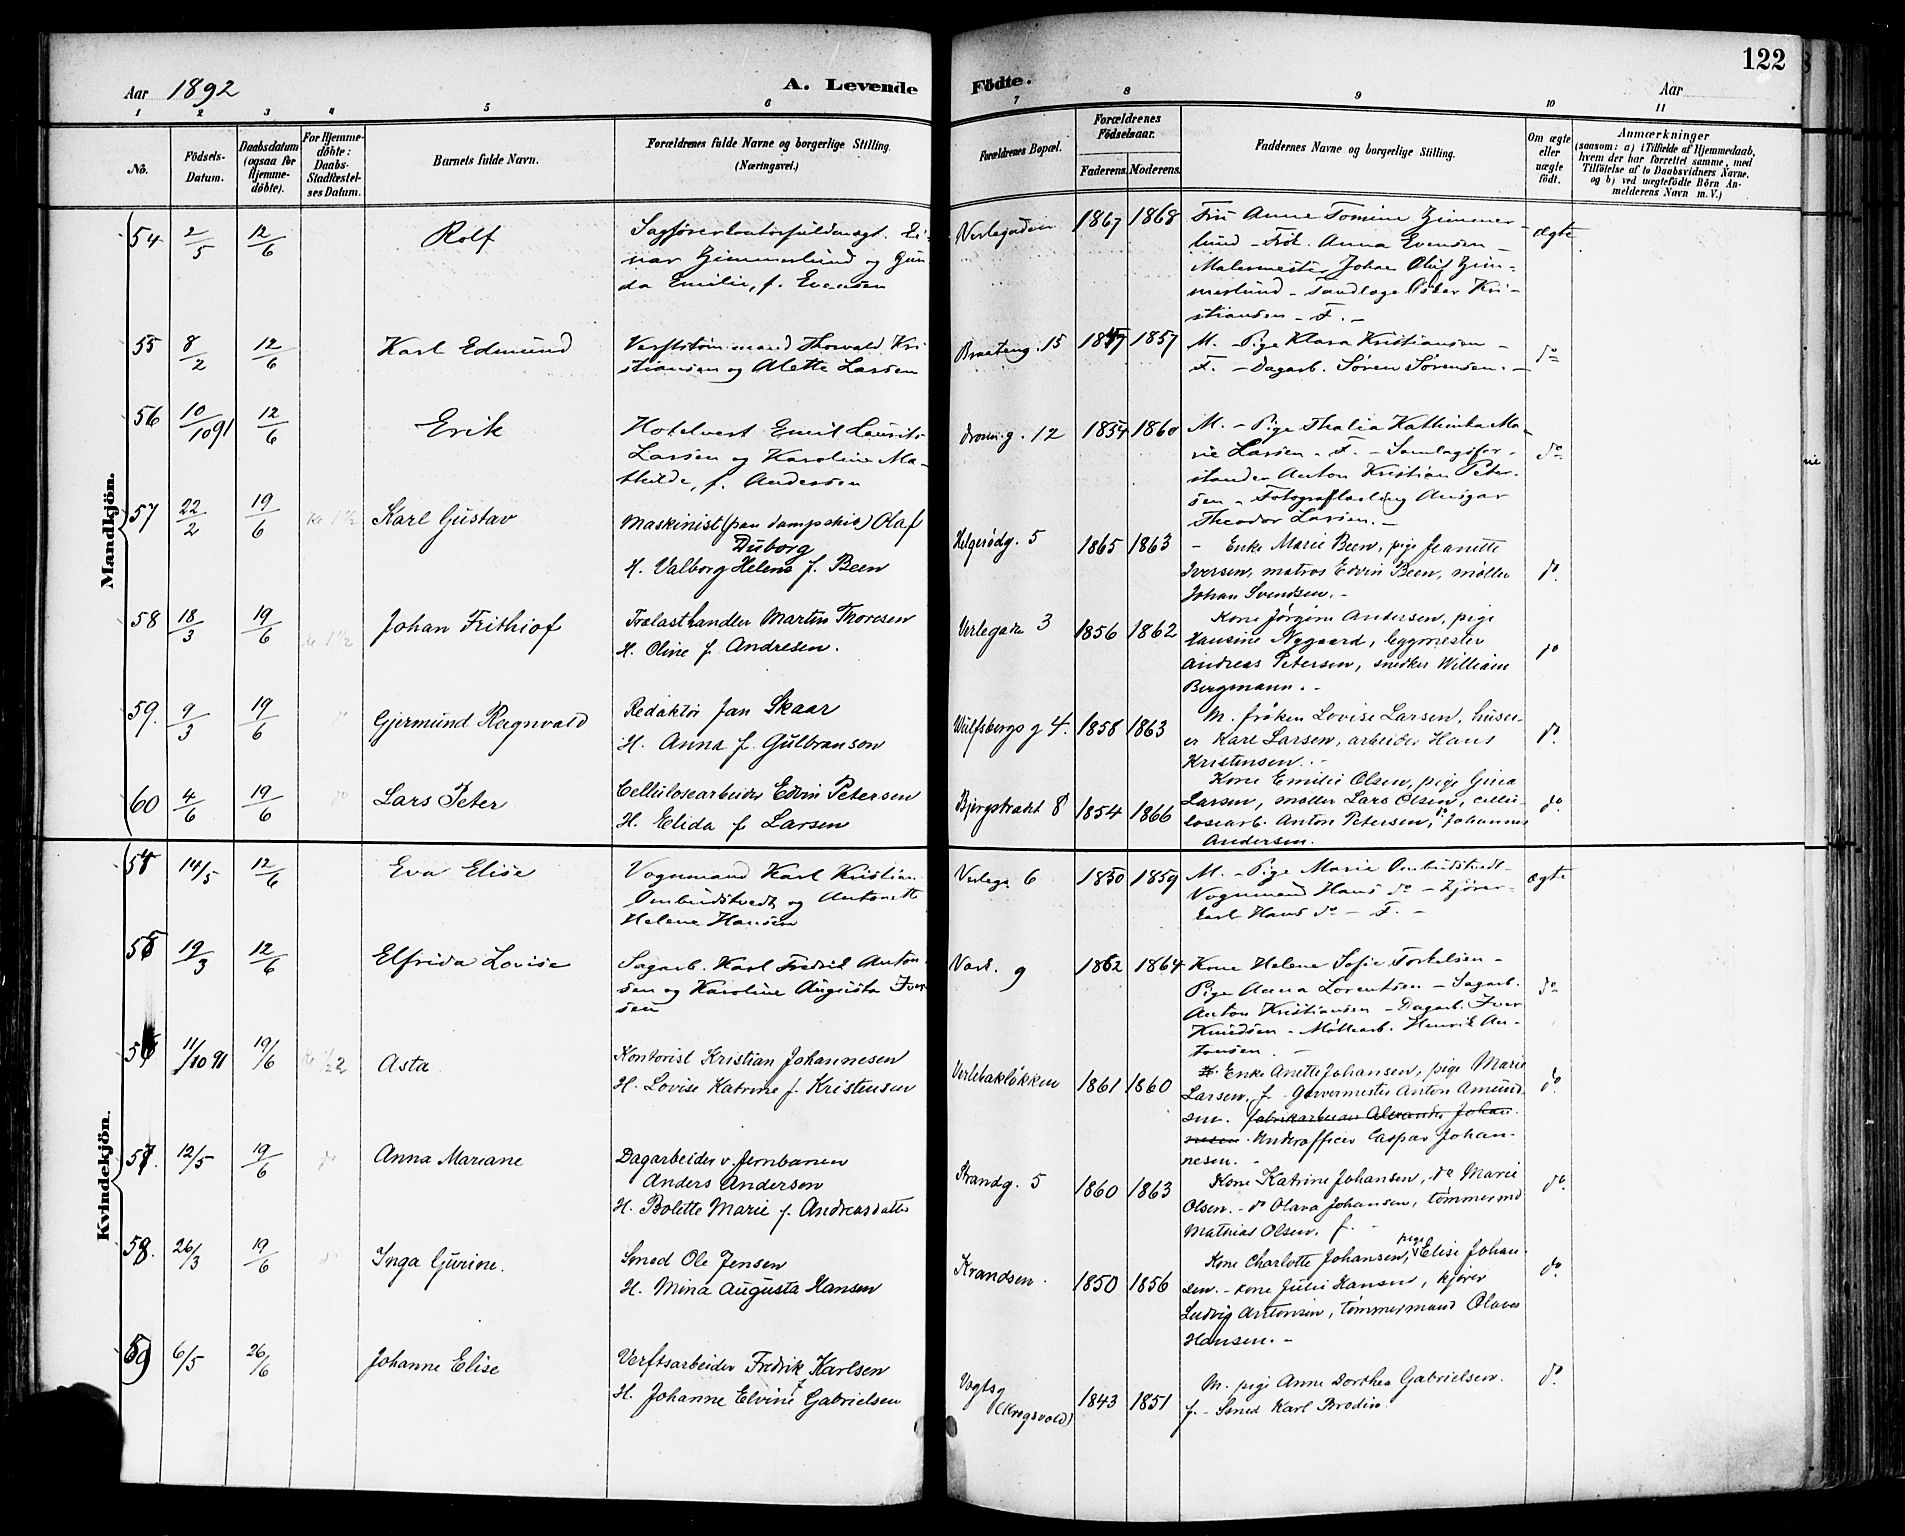 122
Aar 1892
A. Levende
Födte.
Aar
1 2 3 4 5 6 7 8 9 10 11
No.
Födsels-Datum.
Daabsdatum (ogsaa for Hjemme-døbte).
For Hjemme-døbte: Daabs-Stadfæstel-ses Datum.
Barnets fulde Navn.
Forældrenes fulde Navne og borgerlige Stilling. (Næringsvei.)
Forældrenes Bopæl.
Forældrenes Födselsaar.
Faderens. Moderens.
Faddernes Navne og borgerlige Stilling.
Om ægte eller uægte født.
Anmærkninger
(saasom: a) i Tilfælde af Hjemmedaab,
hvem der har forrettet samme, med
Tilföielse af to Daabsvidners Navne.
og b) ved uægtefödte Börn An-
melderens Navn m. V.)
Mandkjön.
54 2/5 12/6 Rolf
Sagførerkontorfuldmægt. Ei-
nar Zimmerlund og Gun-
da Emilie, f. Evensen
Verlegaden 1867 1868
Fru Anne Tomine Zimmer-
lund - Frøk. Anna Evensen -
Malermester Johan Oluf Zim-
merlund - Tandlæge Peter Kri-
stiansen - F. -
ægte
55 8/2 12/6 Karl Edmund
Verftstømmermand Thorvald Kri
stiansen og Alette Larsen
Braateng. 15 1857
M. - Pige Klara Kristiansen -
F. - Dagarb. Søren Sørensen. -
do
56 10/10 91 12/6 Erik
Hotelvert Emil Laurits
Larsen og Karoline Ma-
thilde, f. Andersen
Dronn.g. 12 1854 1860
M. - Pige Thalia Kathinka Ma-
rie Larsen - F. - Samlagsfor-
stander Anton Kristian Peter-
sen - Fotograflærling Ansgar
Theodor Larsen. -
do
57 22/2 19/6 Ke 1 1/2 Karl Gustav
Maskinist (paa dampskib) Olaf
Duborg
H. Valborg Helene f. Been
Helgerødg. 5 1865 1863
- Enke Marie Been, pige Jeanette
Iversen, matros Edvin Been, møller
Johan Svendsen. -
do.
58 18/3 19/6 Ke 1 1/2 Johan Frithiof
Trælasthandler Martin Thoresen
H. Oline f. Andresen.
Verlegaden 3 1856 1862
Kone Jørgine Andersen, pige
Hansine Nygaard, bygmester
Andreas Petersen, snedker William
Bergmann. -
do
59. 9/3 19/6 do Gjermund Ragnvald
Redaktør Jan Skaar
H. Anna f. Gulbranson
Wulfsbergs g 4. 1858 1863
M. frøken Lovise Larsen, huseier
Karl Larsen, arbeider Hans
Kristensen. -
do.
60 4/6 19/6 do Lars Peter
Cellulosearbeider Edvin Petersen
H. Elida f. Larsen
Bjergstrædet 8 1854 1866
Kone Emilie Olsen, pige Gina
Larsen, møller Lars Olsen, cellu-
losearb. Anton Petersen, do Johannes
Andersen.
do.
Kvindekjön.
54 14/5 12/6 Eva Elise
Vognmand Karl Kristian
Ombudstvedt og Antonette
Helene Hansen
Verlega 6 1850 1859
M. - Pige Marie Ombudstvedt -
Vognmand Hans do - Kjører-
karl Hans do - F. -
ægte
55 19/3 12/6 Elfrida Lovise
Sagarb. Karl Fredrik Anton-
sen og Karoline Augusta Iver-
sen
9 1862 1864
Kone Helene Sofie Torkelsen -
Pige Anna Lorentsen - Sagarb.
Anton Kristiansen - Dagarb. Iver
Knudsen - Møllearb. Henrik An-
tonsen. -
do
56 11/10 91 19/6 Asta.
Kontorist Kristian Johannesen
H. Lovise Katrine f. Kristensen
Verlebakløkken 1861 1860
Enke Anette Johansen, pige Marie
Larsen, f. Garvermester Anton Amund-
sen. fabrikarbeider Alexander Johan-
nesen. Underofficer Caspar Johan-
nesen. -
do.
57. 12/5 19/6 do Anna Mariane
Dagarbeider v. Jernbanen
Anders Andersen
H. Bolette Marie f. Andreasdatter
Strandg. 5 1860 1863
Kone Katrine Johansen, do Marie
Olsen. - do Olava Johansen, tømmermd
Mathias Olsen, f. -
do.
58. 26/3 19/6 do Inga Gurine.
Smed Ole Jensen
H. Mina Augusta Hansen
Strandsen. 1850 1856
Kone Charlotte Johansen, pige Elise Johan-
sen. - kone Julie Hansen, kjører
Ludvig Antonsen, tømmermand Olaves
Hansen. -
do.
59 6/5 26/6 Johanne Elise
Verftsarbeider Fredrik Karlsen
H. Johanne Elvine f Gabrielsen
Vogtsg
(Krogsvold) 1843 1851
M. pige Anne Dorthea Gabrielsen.
f. - Smed Karl Brodin.
do.